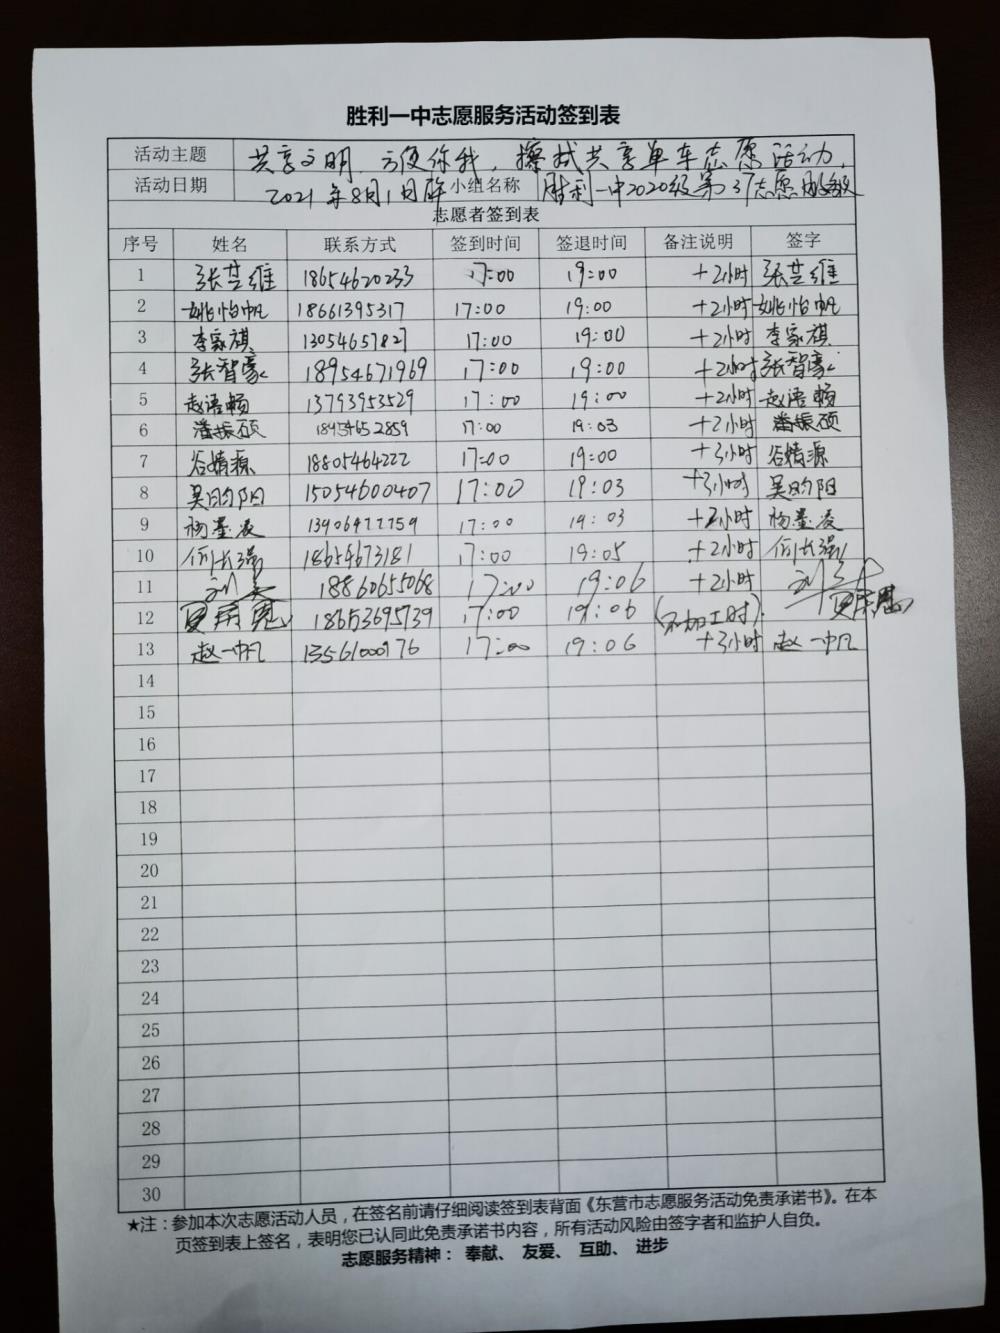 胜利一中志愿服务活动签到表
活动主题 共享文明 方便你我，擦拭共享单车志愿活动.
活动日期 2021年8月1日 小组名称 胜利一中2020级第37志愿服务
志愿者签到表
序号 姓名 联系方式 签到时间 签退时间 备注说明 签字
1 张芸维 18654620233 17:00 19:00 +2小时 张芸维
2 姚怡帆 18661395317 17:00 19:00 +2小时 姚怡帆
3 李家祺 13054657827 17:00 19:00 +2小时 李家祺
4 张智豪 18954671969 17:00 19:00 +2小时 张智豪
5 赵语畅 13793953529 17:00 19:00 +2小时 赵语畅
6 潘振硕 18954652859 17:00 19:03 +2小时 潘振硕
7 谷婧源 18805464222 17:00 19:00 +3小时 谷婧源
8 吴昀阳 15054600407 17:00 19:03 +3小时 吴昀阳
9 杨墨凌 13906477759 17:00 19:03 +2小时 杨墨凌
10 何长强 18654673181 17:00 19:05 +2小时 何长强
11 18860655068 17:00 19:06 +2小时
12 18653695739 17:00 19:06 (不加工时).
13 赵一帆 13561000976 17:00 19:06 +3小时 赵一帆
14
15
16
17
18
19
20
21
22
23
24
25
26
27
28
29
30
★注：参加本次志愿活动人员，在签名前请仔细阅读签到表背面《东营市志愿服务活动免责承诺书》。在本
页签到表上签名，表明您已认同此免责承诺书内容，所有活动风险由签字者和监护人自负。
志愿服务精神： 奉献、 友爱、 互助、 进步